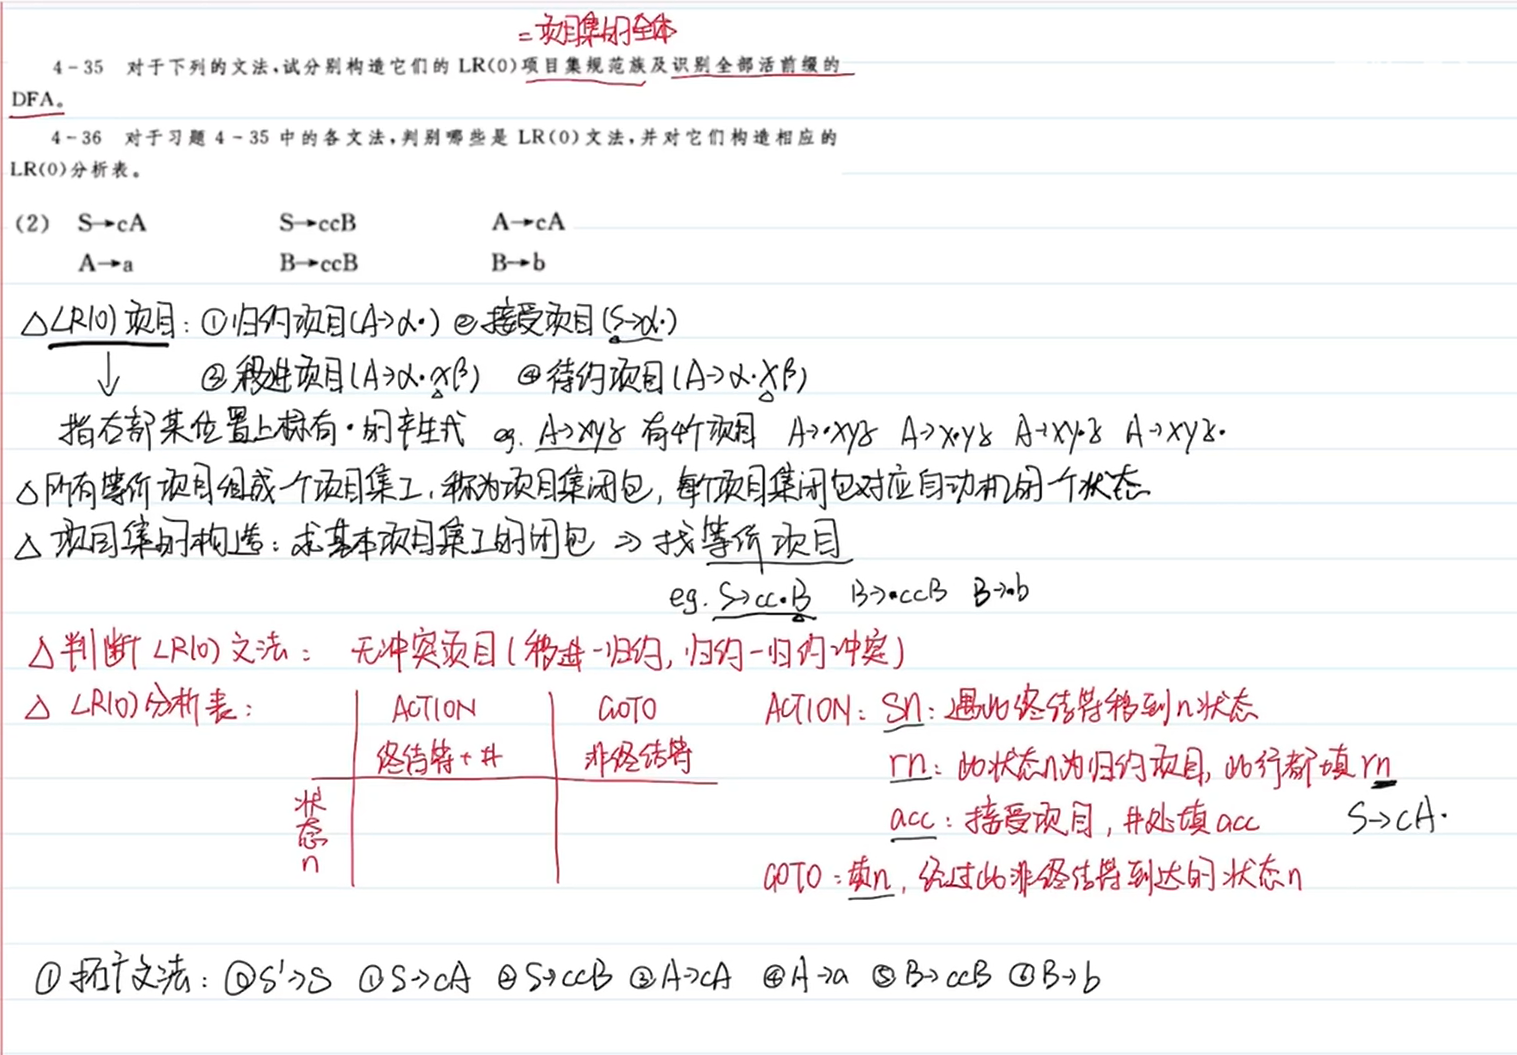 =项目集的全体
4-35 对于下列的文法,试分别构造它们的 LR(0)项目集规范族及识别全部活前缀的
DFA。
4-36 对于习题 4-35 中的各文法,判别哪些是 LR(0)文法,并对它们构造相应的
LR(0)分析表。
(2) S→cA S→ccB A→cA
A→a B→ccB B→b
△LR(0)项目: ①归约项目(A→α·) ②接受项目(S→α·)
③移进项目(A→α·xβ) ④待约项目(A→α·Xβ)
指右部某位置上标有·的产生式 eg. A→xyz 有4个项目 A→·xyz A→x·yz A→xy·z A→xyz·
△所有等价项目组成一个项目集I,称为项目集闭包,每个项目集闭包对应自动机的一个状态
△项目集的构造:求基本项目集I的闭包 ⇒ 找等价项目
eg. S→cc·B B→·ccB B→·b
△判断 LR(0)文法: 无冲突项目(移进-归约,归约-归约冲突)
△ LR(0)分析表: ACTION GOTO ACTION: Sn:遇此终结符移到n状态
终结符+# 非终结符 rn:此状态n为归约项目,此行都填rn
状态n acc:接受项目,#处填acc S→cA·
GOTO:填n,经过此非终结符到达的状态n
①拓广文法: ⓪S'→S ①S→cA ②S→ccB ③A→cA ④A→a ⑤B→ccB ⑥B→b